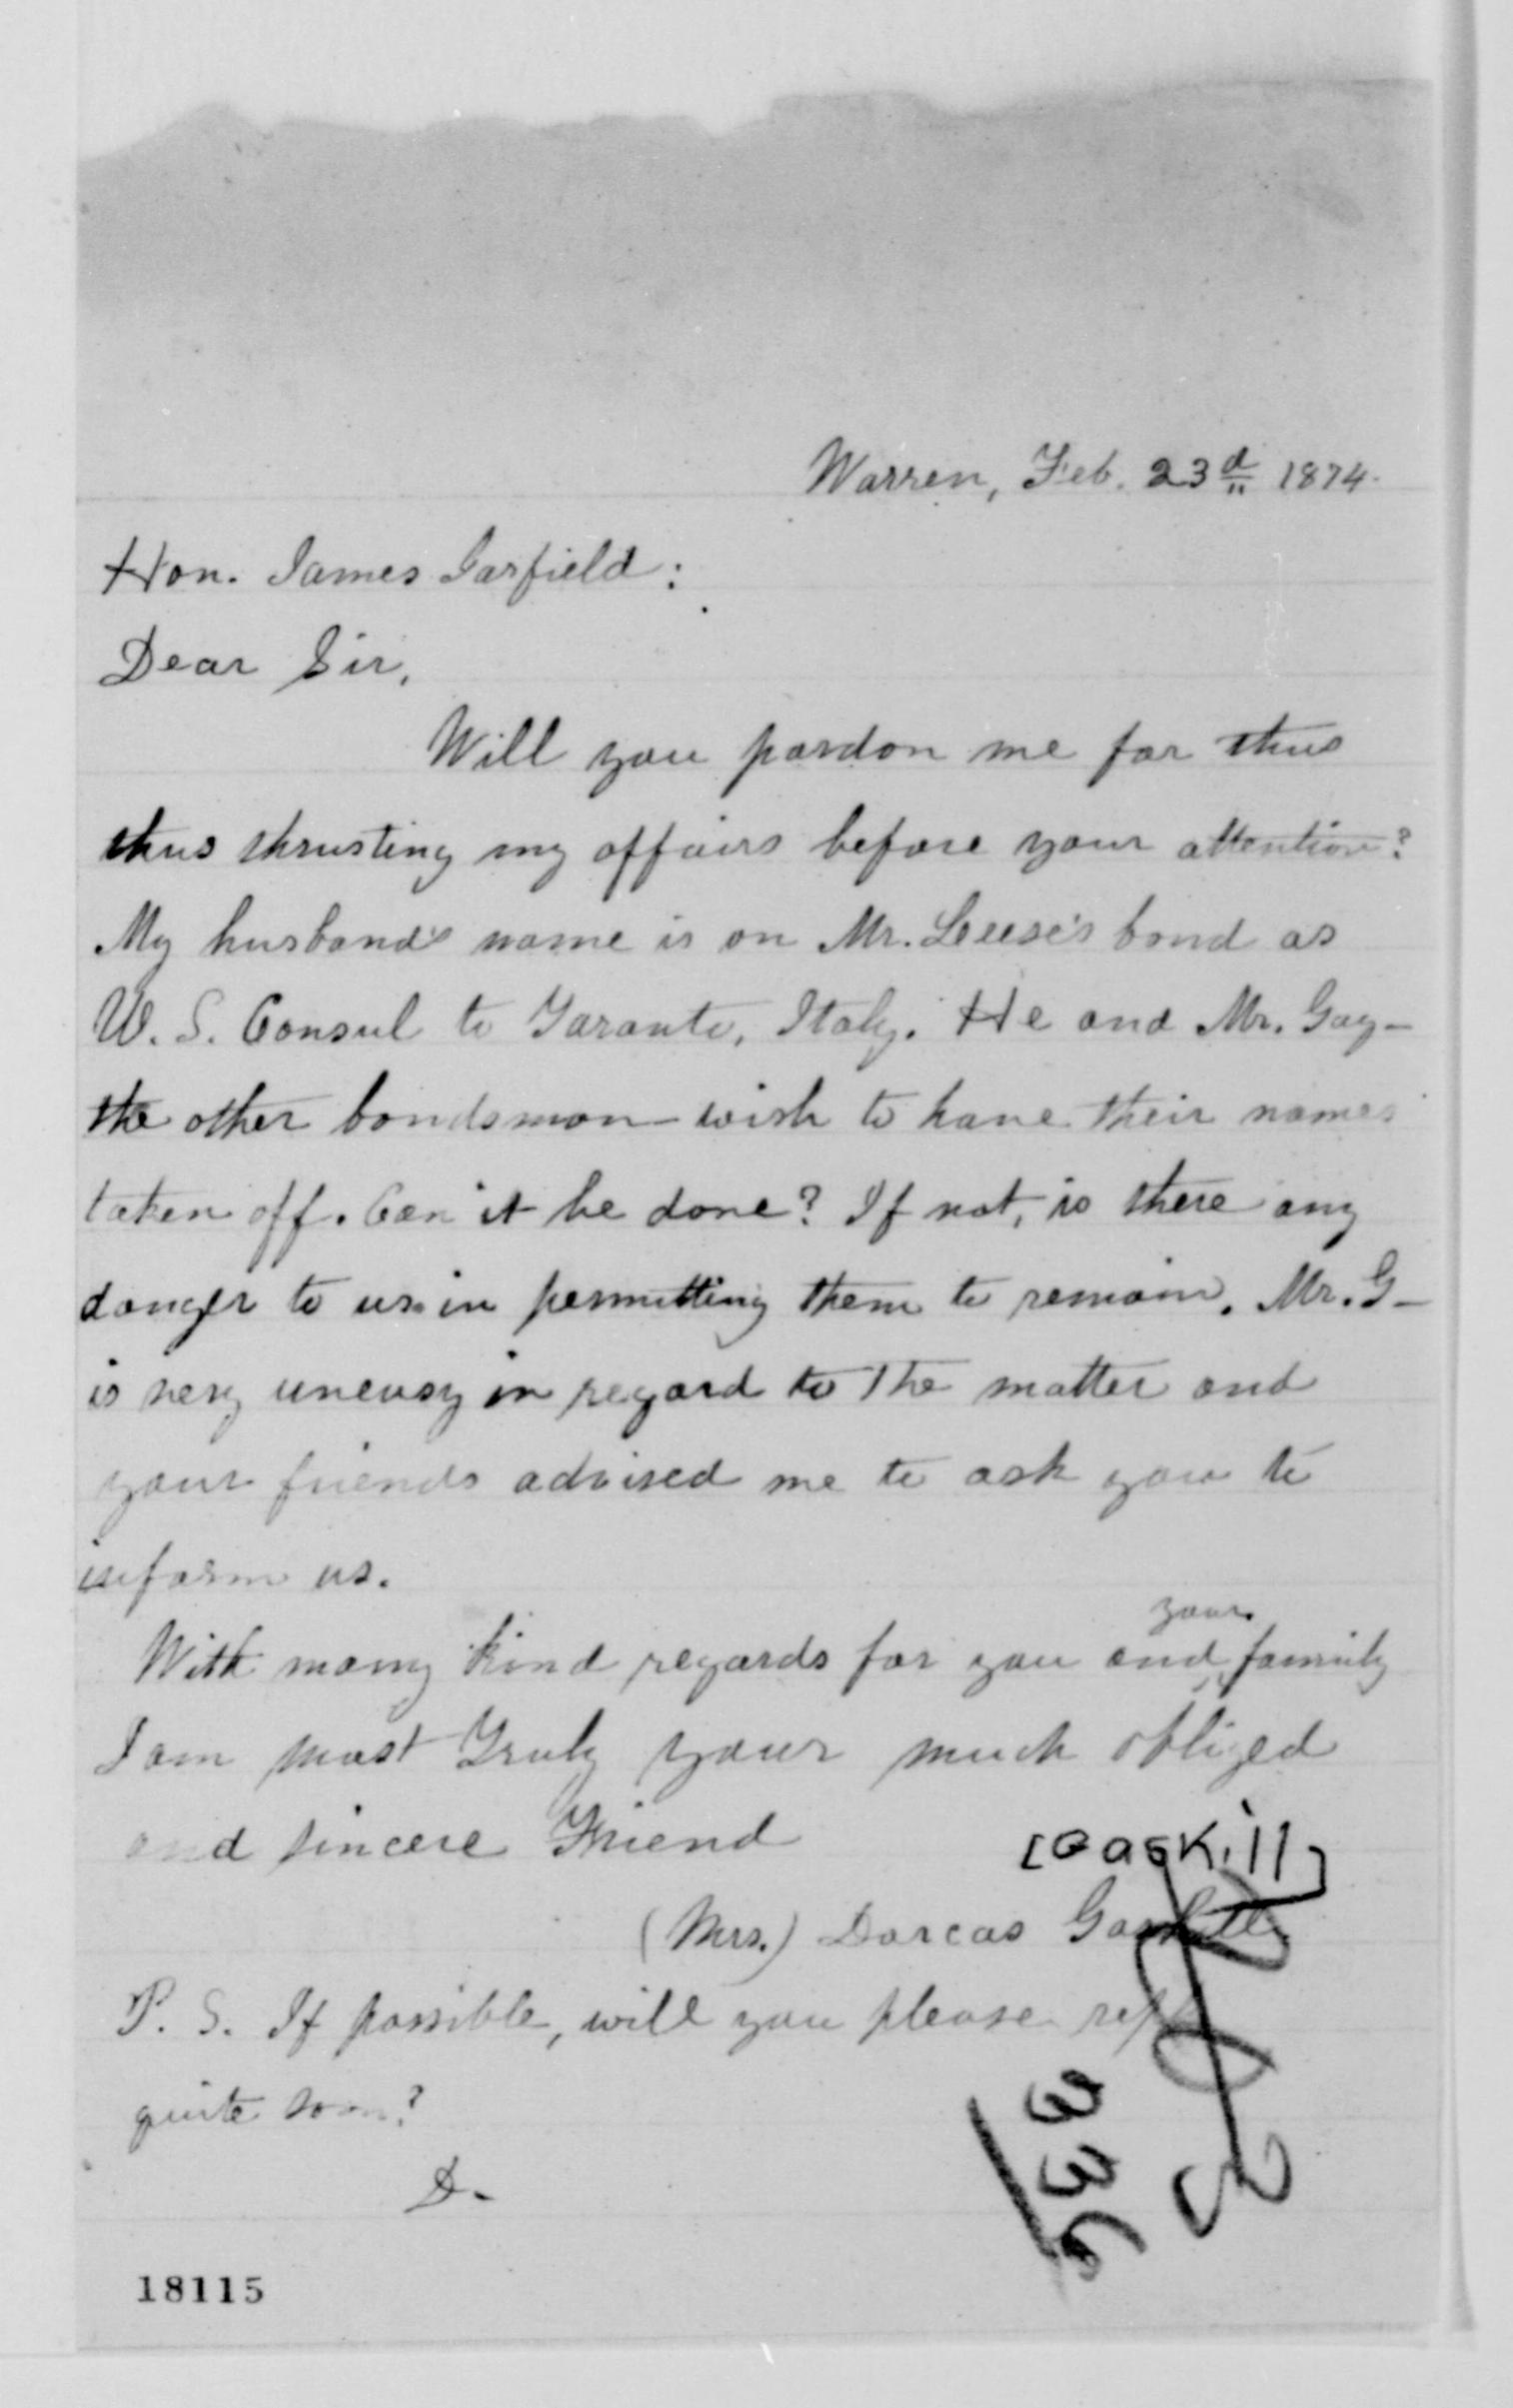 Warren, Feb. 23d 1874.
Hon. James Garfield:
Dear Sir,
Will you pardon me for thus
thus thrusting my affairs before your attention?
My husband's name is on Mr. Leese's bond as
U. S. Consul to Taranto, Italy. He and Mr. Gay-
the other bondsman - wish to have their names
taken off. Can it be done? If not, is there any
danger to us in permitting them to remain. Mr. G-
is very uneasy in regard to the matter and
your friends advised me to ask you to
inform us.
your
With many kind regards for you and ‸ family
I am most Truly your much obliged
and sincere Friend
[Gaskill]
(Mrs.) Dorcas Gaskill
P. S. If possible, will you please reply
quite soon?
D-
336
18115